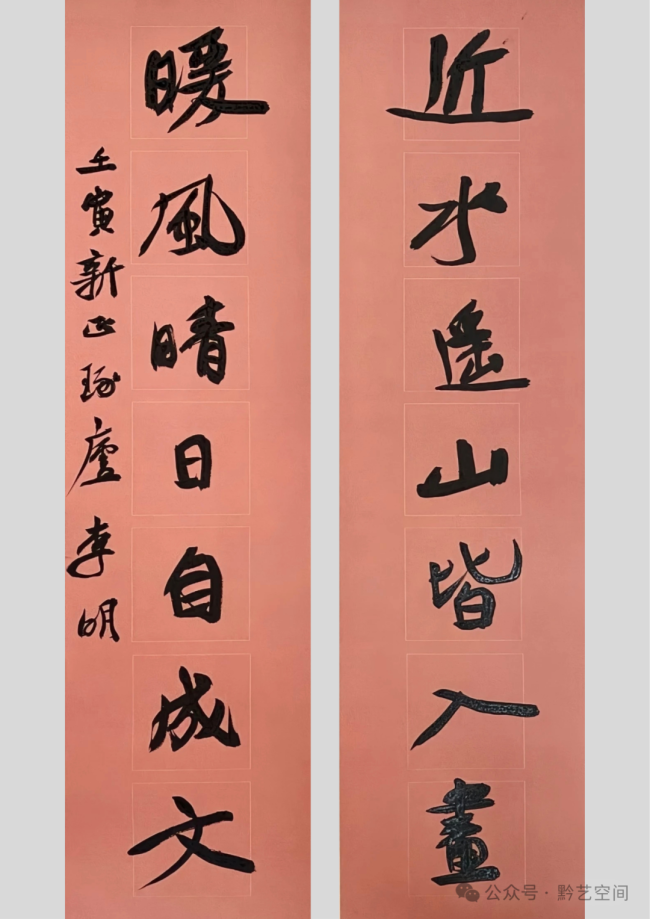 近水遥山皆入畫
暖風晴日自成文
壬寅新正琢廬李明
公众号·黔艺空间